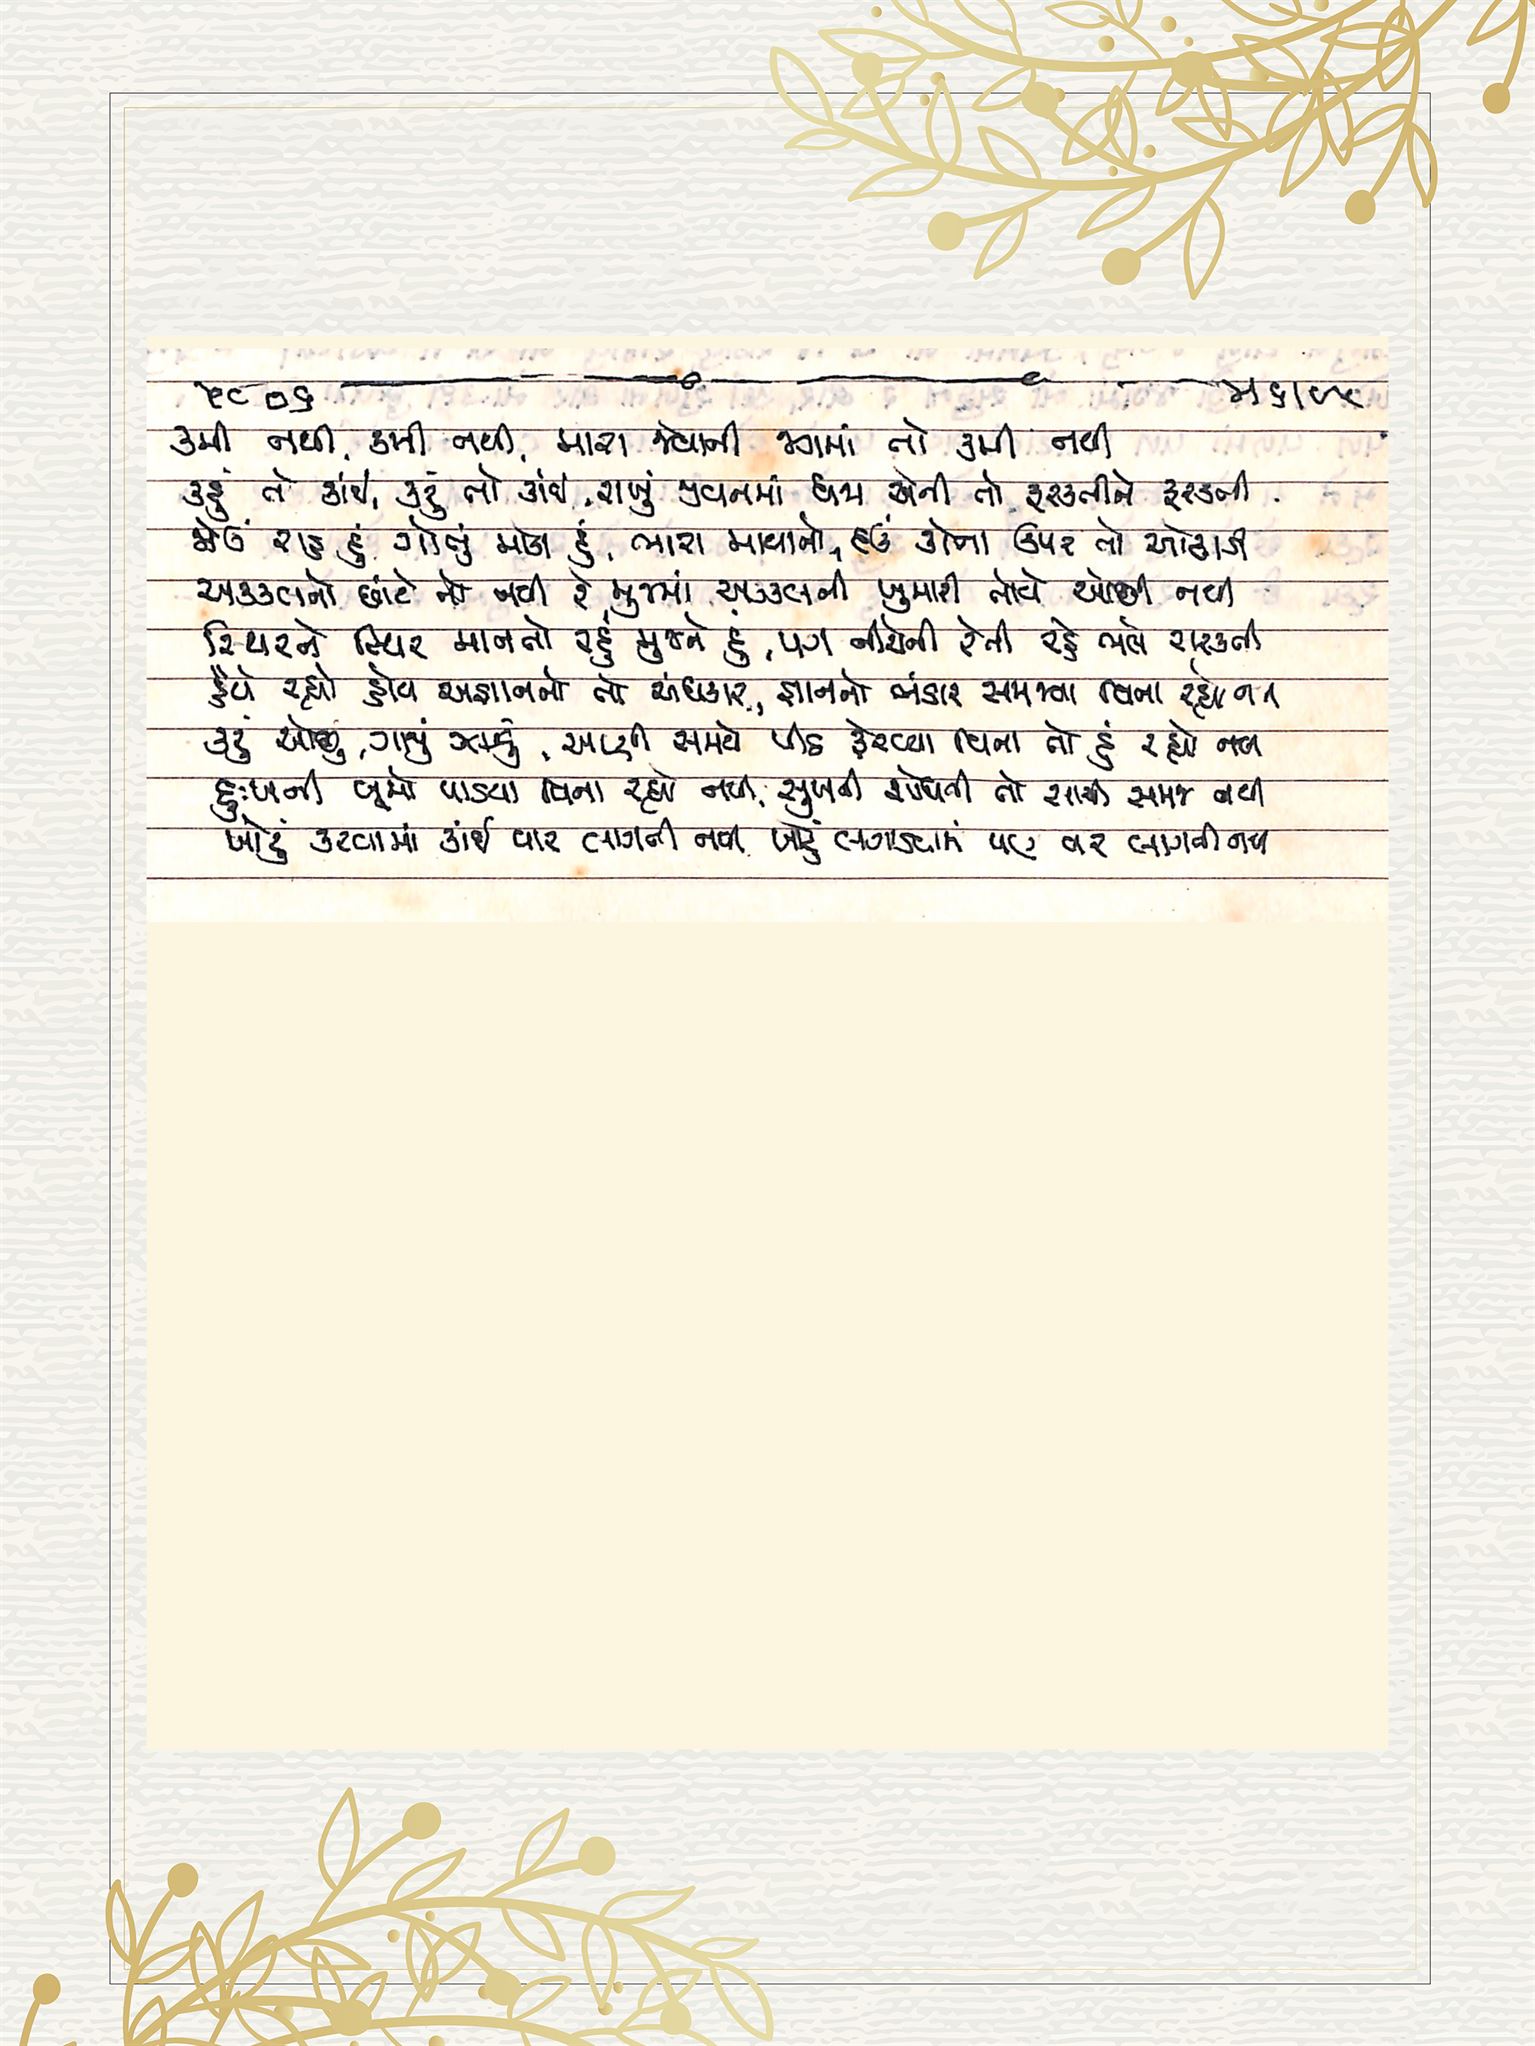 કમી નથી, કમી નથી, મારા જેવાની જગમાં તો કમી નથી
કહું તો કાંઈ, કરું તો કાંઈ, રાખું જીવનમાં છાપ એની તો ફરકતીને ફરકતી.
જોઉં રાહ હું ગોતું મોકો હું, મારા માથાનો, કોના ઉપર તો ઓઢાડી
અક્કલનો છાંટો તો નથી રે મુજમાં અક્કલની ખુમારી તોયે ઓછી નથી
સ્થિરને સ્થિર માનતો રહું મુજને હું, પગ નીચેની રેતી રહે ભલે સરકતી
હૈયે રહ્યો હોય અજ્ઞાનનો તો અંધકાર, જ્ઞાનનો ભંડાર સમજ્યા વિના રહ્યો નથી
કરું ઓછું, ગાવું ઝાઝું, અણી સમયે પીઠ ફેરવ્યા વિના તો હું રહ્યો નથી
દુઃખની બૂમો પાડયા વિના રહ્યો નથી, સુખની શોધની તો સાચી સમજ નથી
ખોટું કરવામાં કાંઈ વાર લાગતી નથી, ખોટું લગાડવામાં પણ વાર લાગતી નથી